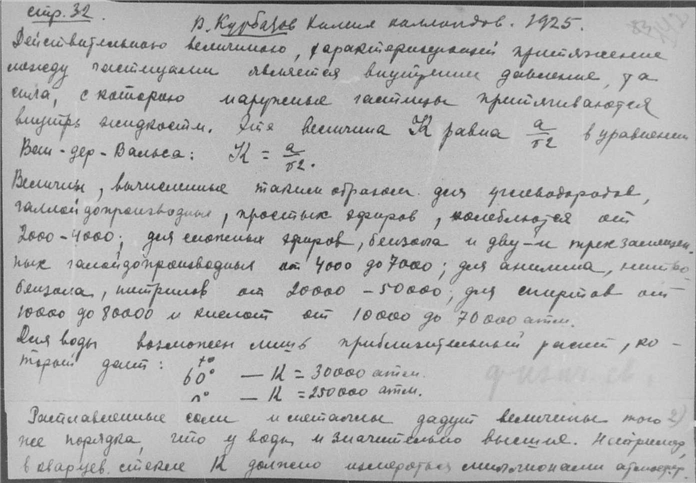 стр. 32. В. Курбатов Химия коллоидов. 1925.
Действительною величиною, характеризующей притяжение
между частицами является внутреннее давление, та
сила, с которою наружные частицы притягиваются
внутрь жидкости. Эта величина K равна a/v2 в уравнении
Ван-дер-Вальса: K = a/v2.
Величины, вычисленные таким образом для углеводородов,
галлойдопроизводных, простых эфиров, колеблются от
2000-4000; для сложных эфиров, бензола и дву-и трехзамещен-
ных галойдопроизводных от 4000 до 7000; для анилина, нитро
бензола, нитрилов от 20000 - 50000; для спиртов от
10000 до 80000 и кислот от 10000 до 70000 атм.
Для воды возможен лишь приблизительный расчет, ко-
торый дает:
60° — K = 30000 атм.
0° — K = 250000 атм.
физич. св.
Расплавленные соли и металлы дадут величины того 2)
же порядка, что у воды и значительно высшие. Например,
в кварцев. стекле K должно измеряться миллионами атмосфер.